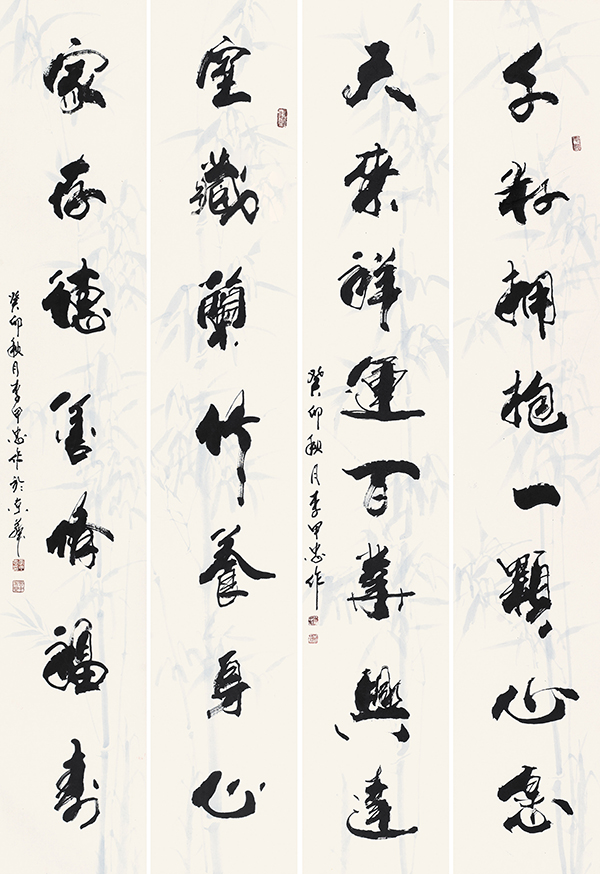 千拥抱一顆心愿
天祥運百業興達
癸卯秋月李甲忠作
室藏蘭竹養身心
家存德善修福寿
癸卯秋月李甲忠作於京華